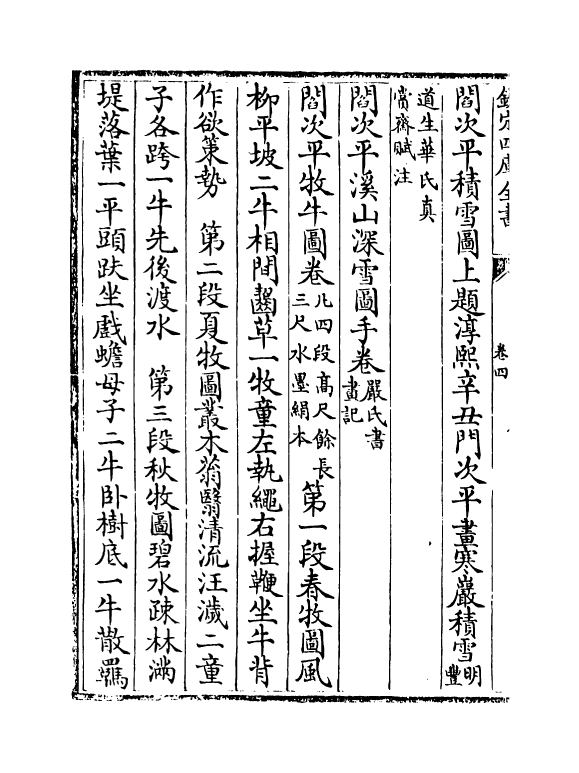 欽定四庫全書
卷四
閻次平積雪圖上題淳熙辛丑門次平畫寒巖積雪明豐
道生華氏真
賞齋賦注
閻次平溪山深雪圖手卷嚴氏書畫記
閻次平牧牛圖卷凡四段高尺餘長三尺水墨絹本第一段春牧圖風
柳平坡二牛相間齝草一牧童左執繩右握鞭坐牛背
作欲策勢　第二段夏牧圖叢木蓊翳清流汪濊二童
子各跨一牛先後渡水　第三段秋牧圖碧水疎林滿
堤落葉一平頭趺坐戲蟾母子二牛卧樹底一牛散羈